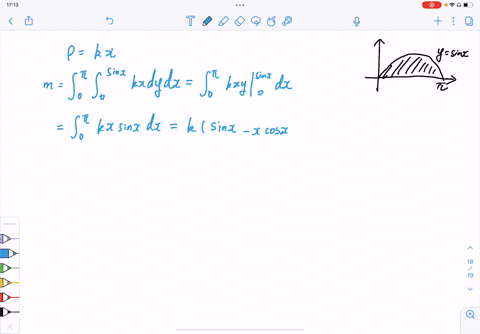 17:13
ρ = kx
y = sinx
m = ∫₀^π ∫₀^sinx kx dy dx = ∫₀^π kxy |₀^sinx dx
π
= ∫₀^π kx sinx dx = k ( sinx - x cosx
18
/
19